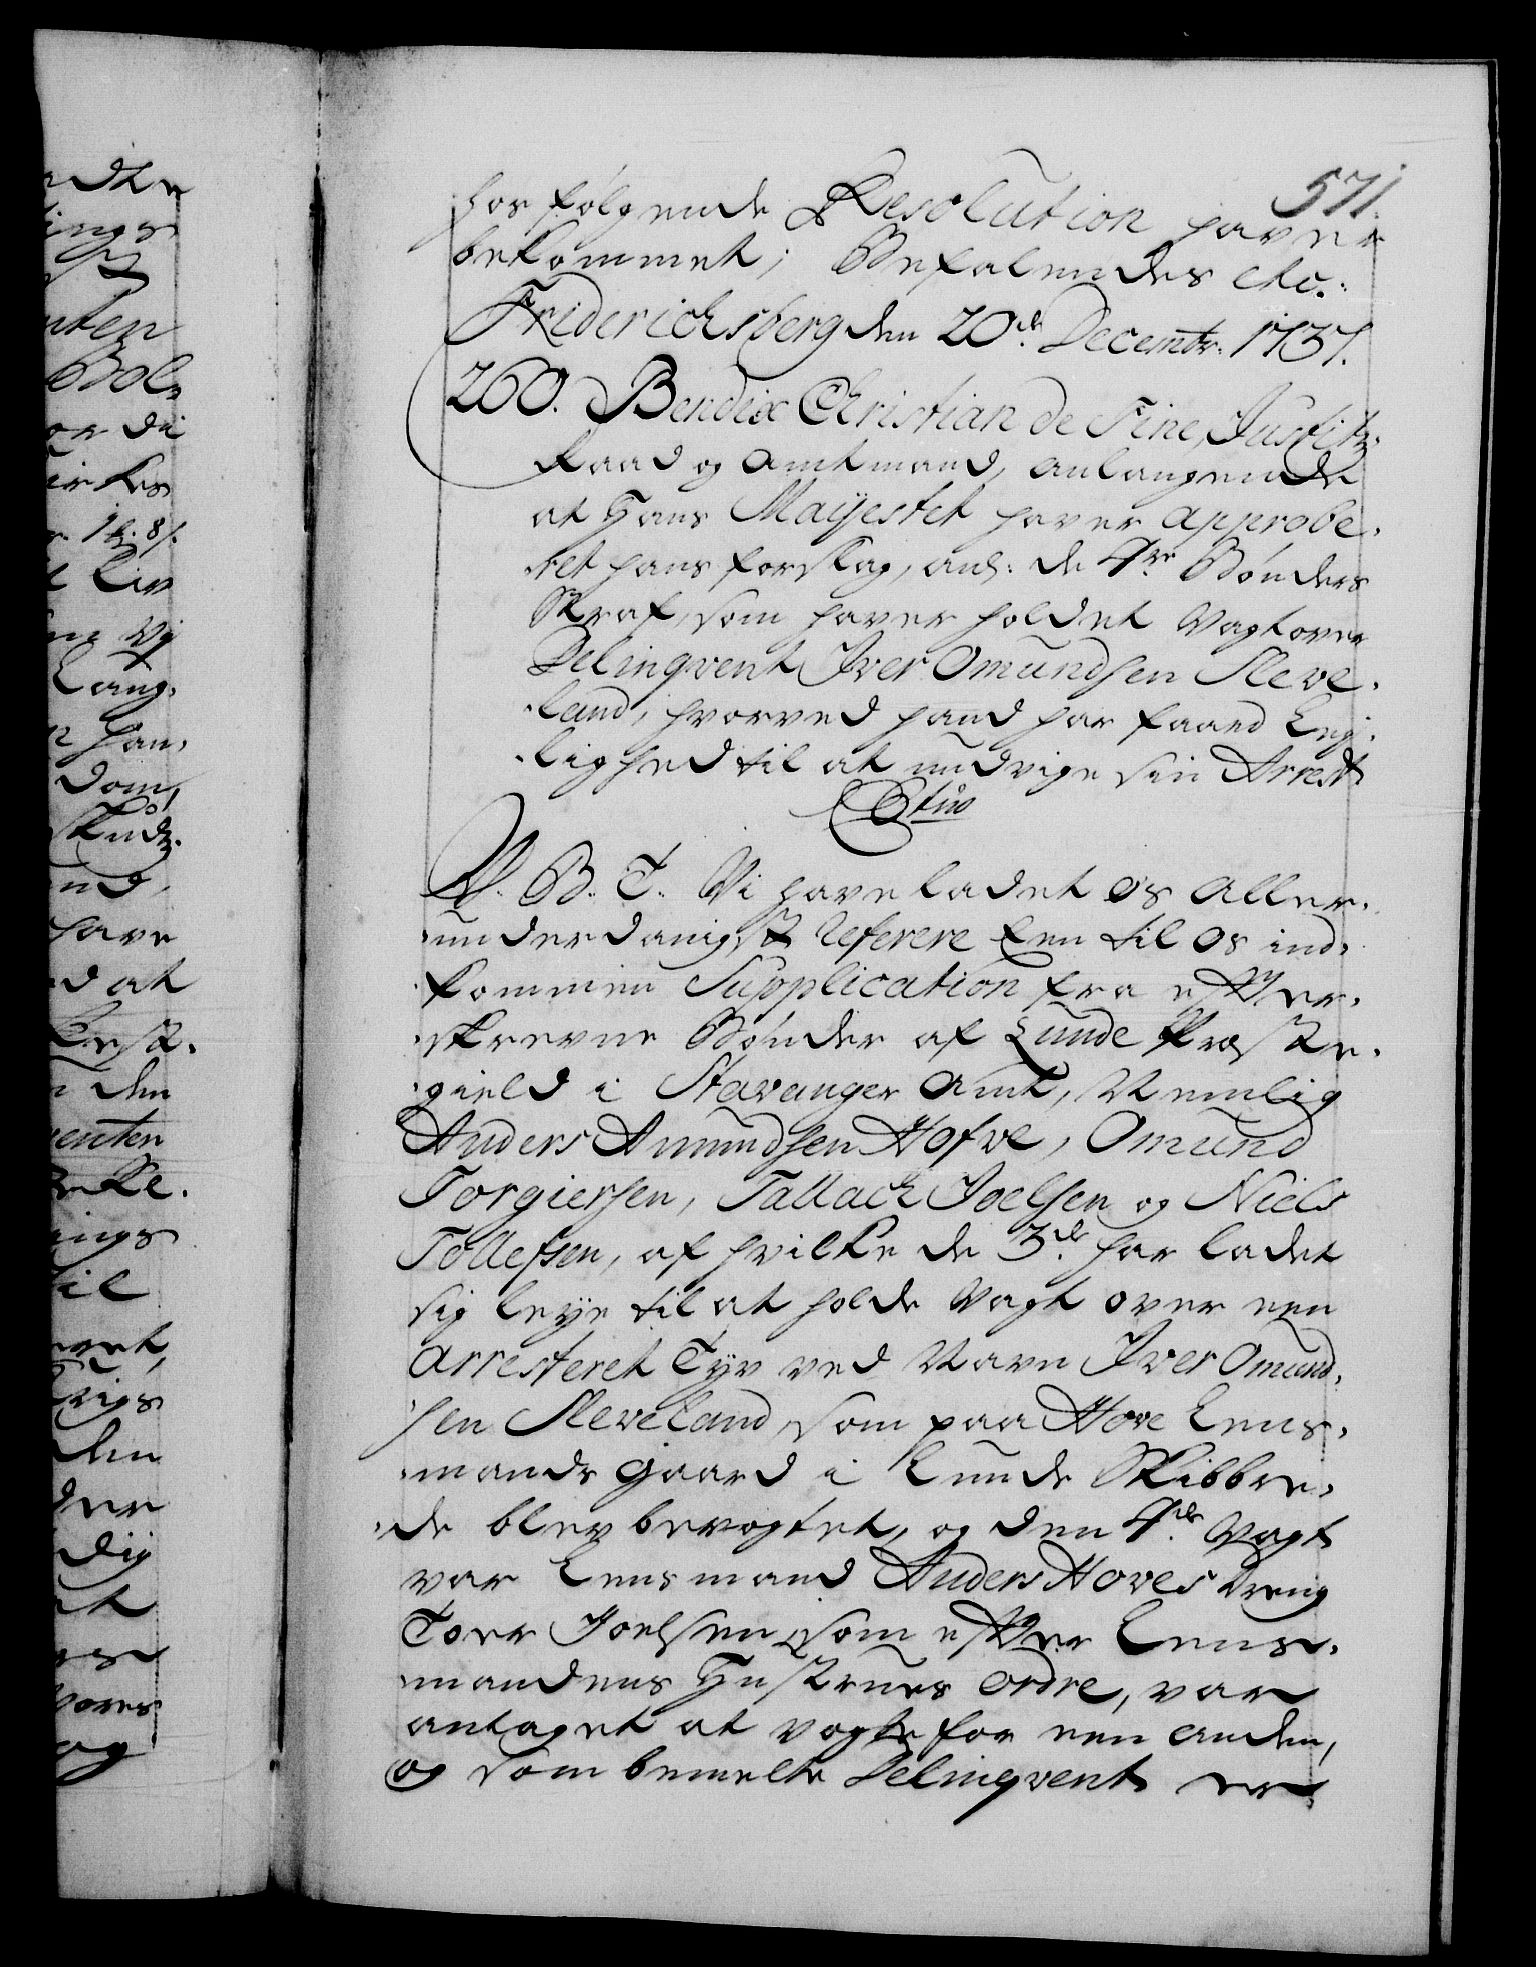 571.
hos følgende Resolution haver
bekommet; Befalendes etc.
Friderichsberg den 20de Decembr. 1737.
260. Bendix Christian de Fine, Justitz-
Raad og Amtmand, anlangende
at Hans Mayestet haver approbe-
ret hans forslag, anl: de 4re Bønders
Straf, som haver holdet Vagt over
Delinqvent Iver Omundsen Sleve-
land, hvorved hand har faaed Lej-
lighed til at undvige sin Arrest
V. B. T. Vi have ladet os Aller-
underdanigst Referere een til os ind-
kommen Supplication fra efter-
skrevne Bønder af Lunde Præste-
gield i Stavanger Amt, Nemlig
Anders Amundsen Hofve, Omund
Torgiersen, Tallach Joelsen og Niels
Tollefsen, af hvilke de 3de har ladet
sig leye til at holde Vagt over een
Arresteret Tyv ved Navn Iver Omund-
sen Sleveland, som paa Hove Lens-
mands Gaard i Lunde Skibbre-
de blev bevogtet, og den 4de Vagt
var Lensmand Anders Hoves Dreng
Toer Joelsen, som efter Lens-
mandens Hustrues Ordre, var
antaget at vogte for een anden,
og som bemelte Delinqvent er
ndte
ings
nten
Bol-
or di
1 ß. 8 ſ.
Lang-
han-
Dom,
nd
have
d at
n den
venten
ings
til
den
der
dig
Vores
og